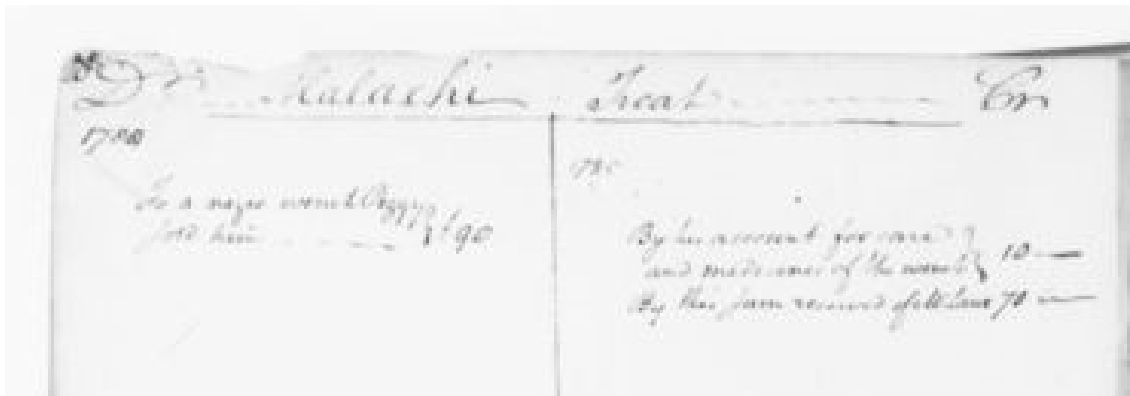 Dr Malachi Treat Cr
1780
To a negro wench Peggy
sold him £ 90
780
By his account for care
and medicines of the wench 10
By this sum received of 70